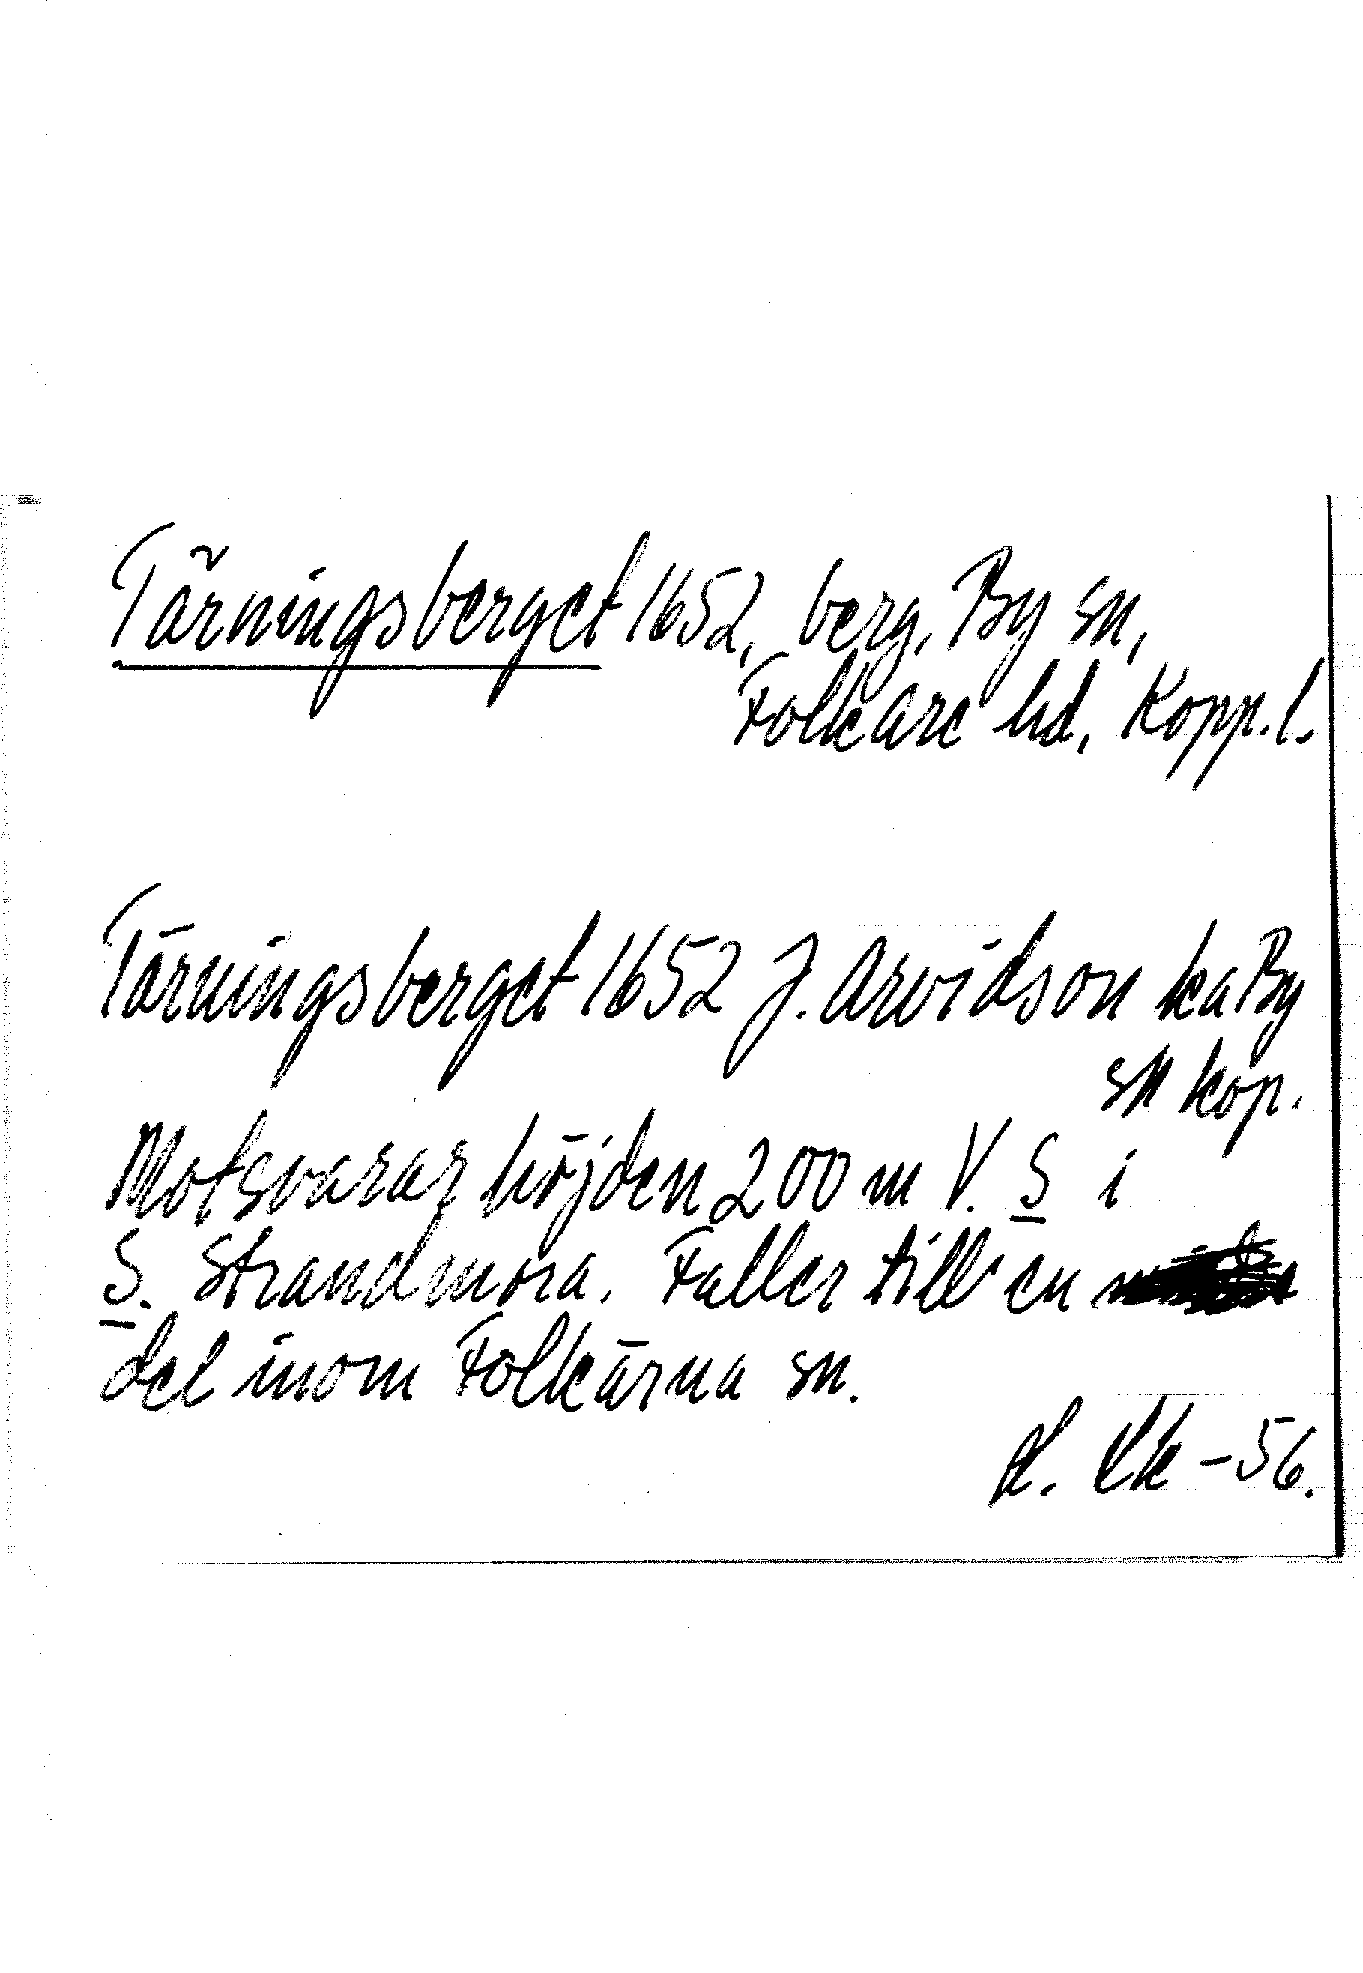 Tärningsberget 1652, berg, By sn,
Folkare hd, Kopp. l.
Tärningsberget 1652 J. Arvidson ka By
sn kop.
Motsvarar höjden 200 m V. S i
S. Strandmora. Faller till en
del inom Folkärna sn.
-56.